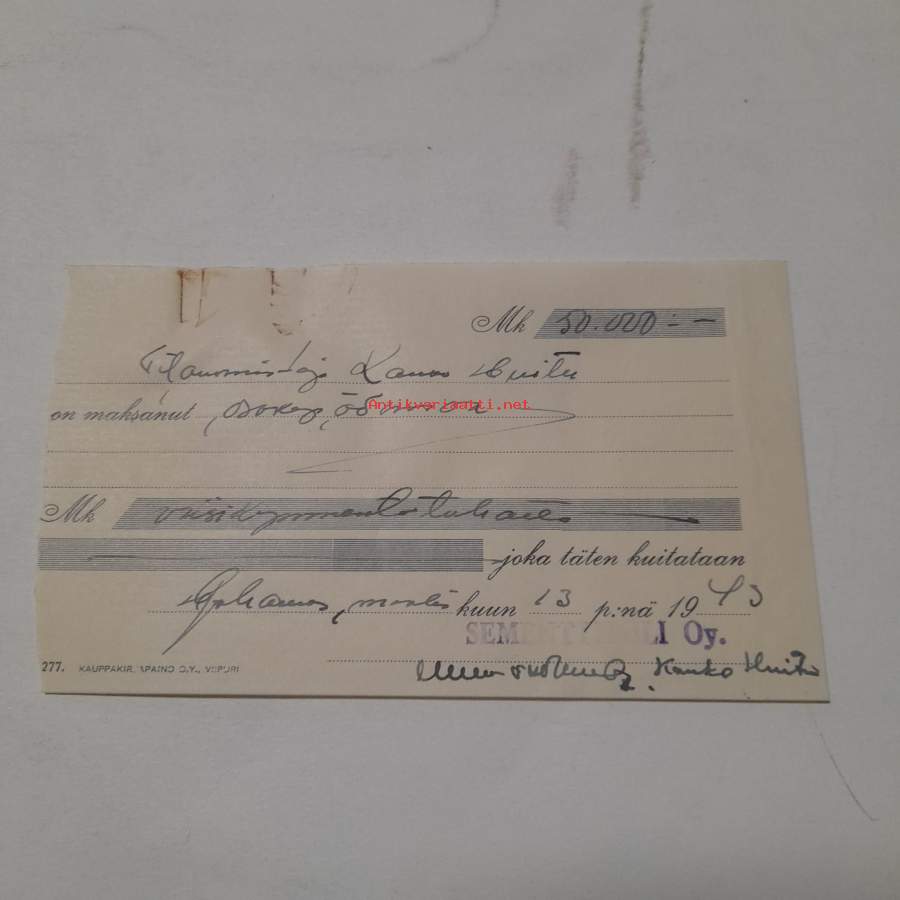 Mk 50.000:--
Tilanomistaja Kauko Huitu
on maksanut osakepääomaa
Antikvariaatti.net
Mk viisikymmentätuhatta
joka täten kuitataan
maalis kuun 13 p:nä 1943
SEMENTTI Oy.
277. KAUPPAKIRJAPAINO O.Y., VIIPURI
Kauko Huitu